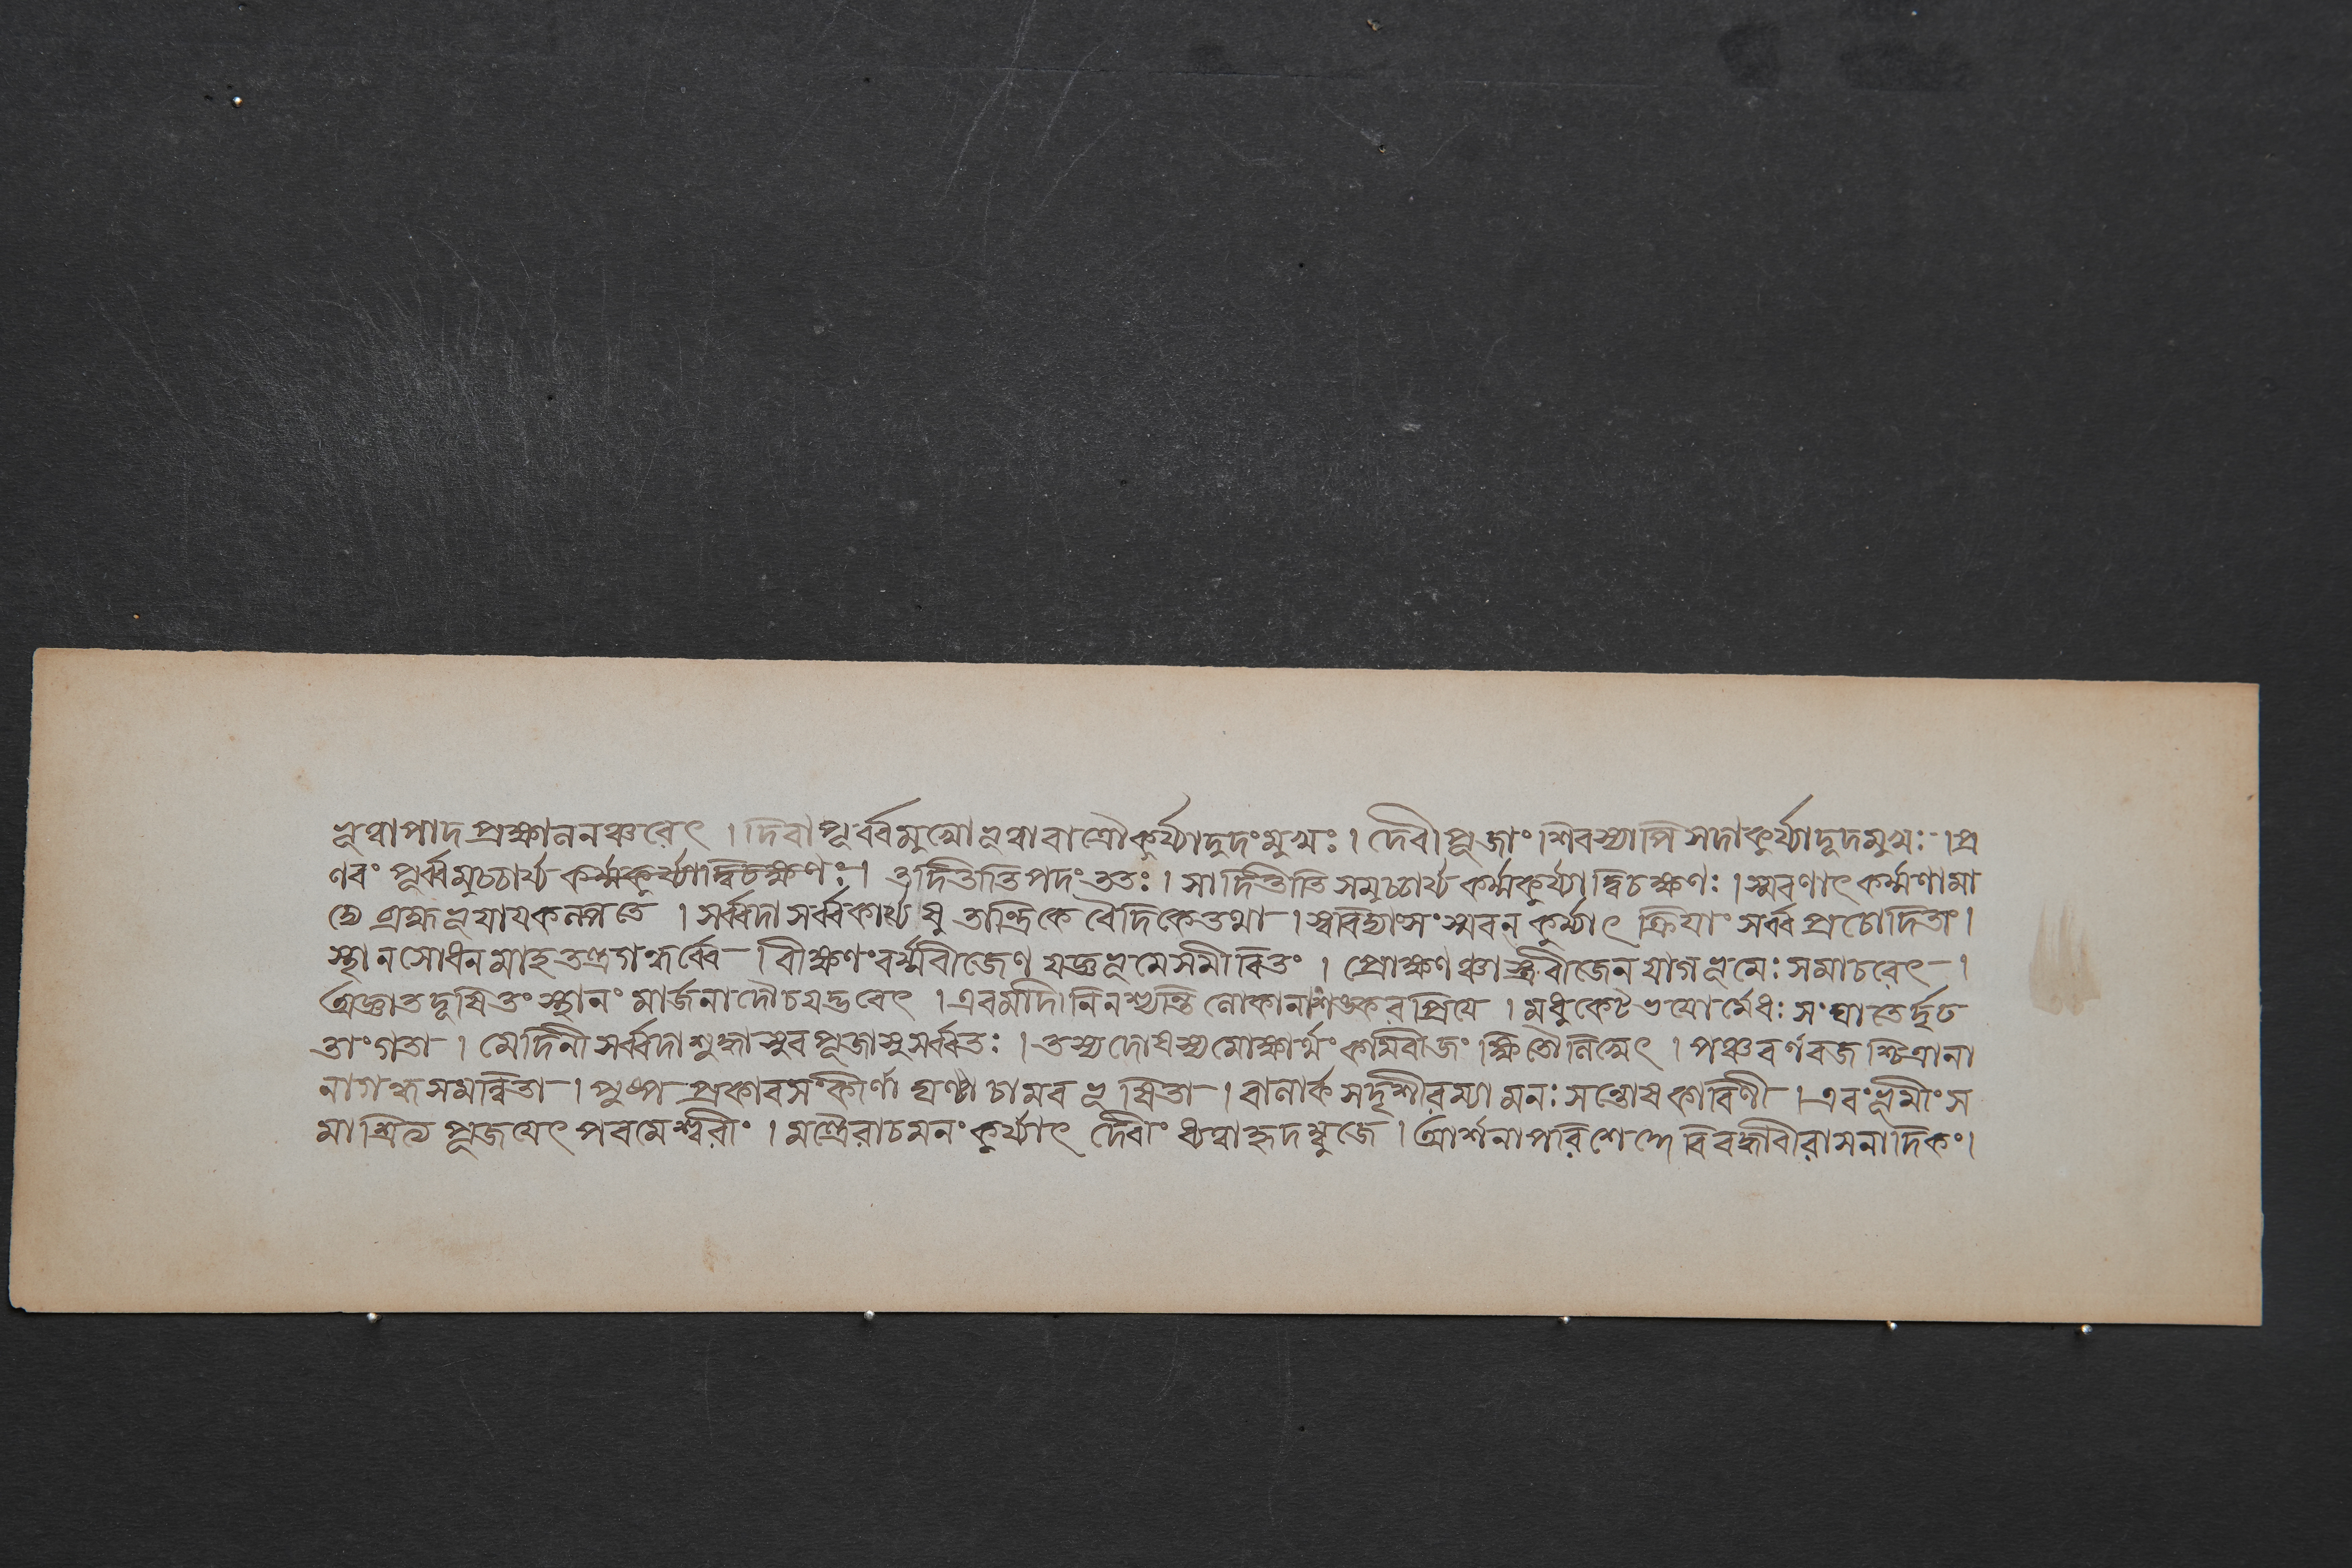 ভূত্বাপাদপ্রক্ষালনঞ্চরেৎ । দিবা পূর্ব্বমুখো ভূত্বা রাত্রৌ কুর্য্যাদুদংমুখঃ । দেবীপূজাং শিবস্যাপি সদাকুর্য্যাদুদমুখঃ । প্র
ণবং পূর্ব্বমুচ্চার্য্য কর্ম্মকুর্য্যাদ্বিচক্ষণঃ । তদিত্তীতি পদং ততঃ । সাদিত্তীতি সমুচ্চার্য্য কর্ম্মকুর্য্যাদ্বিচক্ষণঃ । স্মরণাৎ কর্ম্মণামা
দ্যে ব্রহ্মভূয়ায়কল্পতে । সর্ব্বদা সর্ব্বকার্য্যেষু তান্ত্রিকে বৈদিকে তথা । স্বরিত্যাংসংস্মরন কুর্য্যাৎ ক্রিয়াং সর্ব্ব প্রচোদিতাং ।
স্থানসোধনমাহ । বীক্ষণং বর্ম্মবীজেণ যজ্ঞভূমেসমীরিতং । প্রোক্ষণঞ্চাস্ত্রবীজেন যাগভূমেঃ সমাচরেৎ ।
অজ্ঞাতদূষিতং স্থানং মার্জনাদৌচয়দ্ভবেৎ । এবমাদি নিনশ্যন্তি লোকানাশঙ্করপ্রিয়ে । মধুকৈটভয়োর্মেধঃ সংঘাতের্দৃঢ
তাংগতা । মেদিনী সর্ব্বদা শুদ্ধাসুরপূজাসু সর্ব্বতঃ । তস্যদোষস্যমোক্ষার্থং কামবীজং ক্ষিতৌ লিখেৎ । পঞ্চবর্ণরজশ্চিত্রানা
নাগন্ধসমন্বিতা । পুষ্প প্রকারসংকীর্ণা ঘণ্টাচামরভূষিতা । বালার্কসদৃশীরম্যা মনঃ সন্তোষকারিণী । এবংভূমীং স
মাশ্রিত্য পূজয়েৎ পরমেশ্বরীং । মন্ত্রৈরাচমনং কুর্য্যাৎ দেবীং ধ্যত্বাহৃদম্বুজে ।